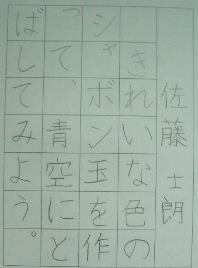 佐藤士朗
きれいな色の
シャボン玉を作
って、青空にと
ばしてみよう。